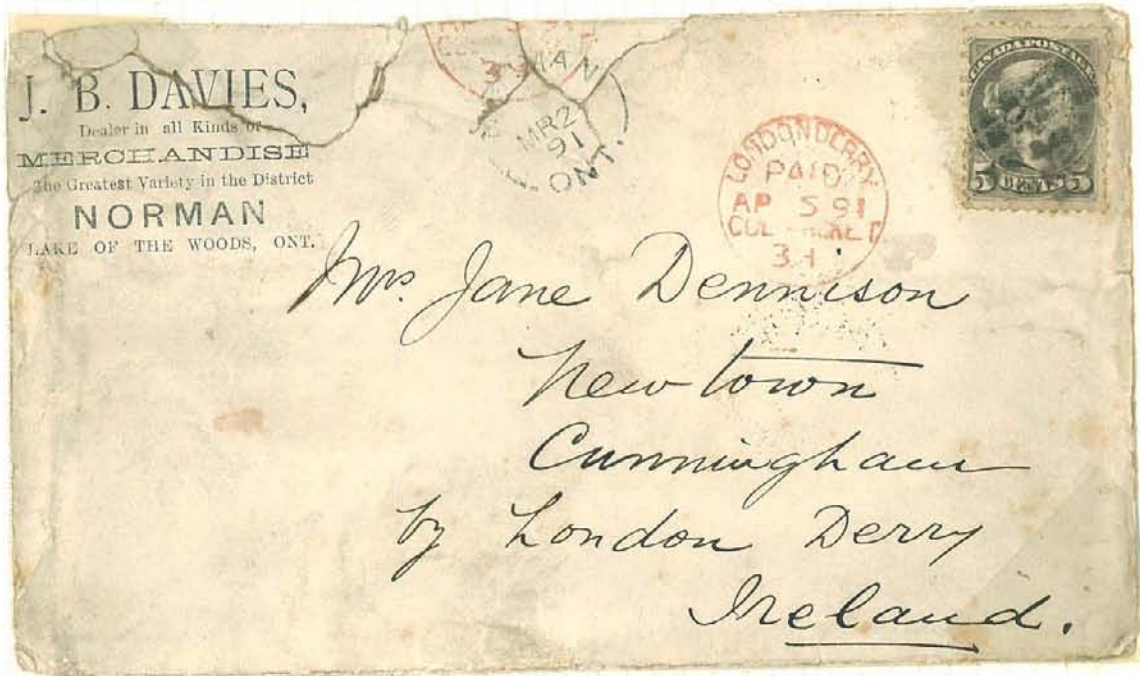 J. B. DAVIES,
Dealer in all Kinds of
MERCHANDISE
The Greatest Variety in the District
NORMAN
LAKE OF THE WOODS, ONT.
MAN
MR 2
91
ONT.
LONDONDERRY
PAID
AP 5 91
3 H
CANADA POSTAGE
5 CENTS 5
Mrs. Jane Dennison
Newtown
Cunningham
by London Derry
Ireland.